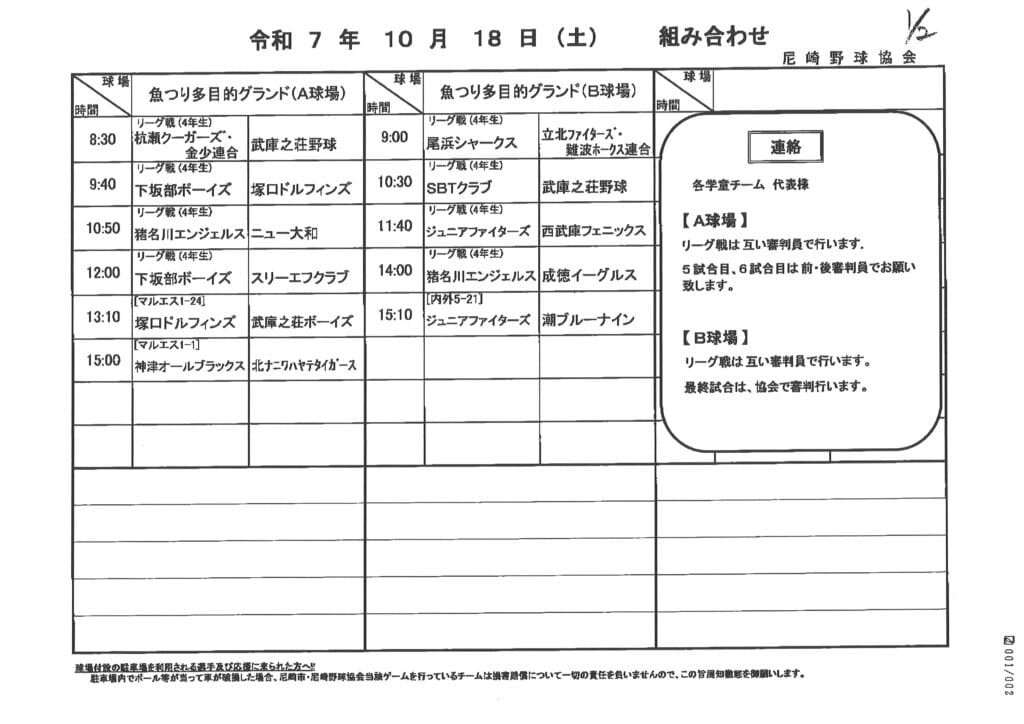 令和 7 年 10 月 18 日 (土) 組み合わせ
1/2
尼崎野球協会
球場
時間
魚つり多目的グランド(A球場)
球場
時間
魚つり多目的グランド(B球場)
球場
時間
8:30
リーグ戦 (4年生)
杭瀬クーガーズ・
金少連合
武庫之荘野球
9:00
リーグ戦 (4年生)
尾浜シャークス
立北ファイターズ・
難波ホークス連合
9:40
リーグ戦 (4年生)
下坂部ボーイズ
塚口ドルフィンズ
10:30
リーグ戦 (4年生)
SBTクラブ
武庫之荘野球
10:50
リーグ戦 (4年生)
猪名川エンジェルス
ニュー大和
11:40
リーグ戦 (4年生)
ジュニアファイターズ
西武庫フェニックス
12:00
リーグ戦 (4年生)
下坂部ボーイズ
スリーエフクラブ
14:00
リーグ戦 (4年生)
猪名川エンジェルス
成徳イーグルス
13:10
[マルエス1-24]
塚口ドルフィンズ
武庫之荘ボーイズ
15:10
[内外5-21]
ジュニアファイターズ
潮ブルーナイン
15:00
[マルエス1-1]
神津オールブラックス
北ナニワハヤテタイガース
連絡
各学童チーム 代表様
【A球場】
リーグ戦は 互い審判員で行います.
5試合目、6試合目は 前・後審判員でお願い
致します。
【B球場】
リーグ戦は 互い審判員で行います。
最終試合は、協会で審判行います。
球場付設の駐車場を利用される選手及び応援に来られた方へ!!
駐車場内でボール等が当って車が破損した場合、尼崎市・尼崎野球協会当該ゲームを行っているチームは損害賠償について一切の責任を負いませんので、この旨周知徹底を御願いします。
001/002